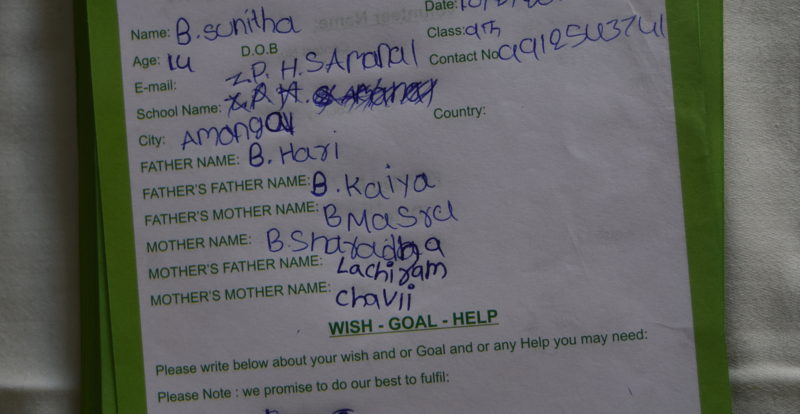 Date:
Name: B.sunitha
Class: 9th
Age: 14 D.O.B
Contact No 9912543741
E-mail:
Z.P.H.S Amanal
School Name:
City: Amongal
Country:
FATHER NAME: B. Hari
FATHER'S FATHER NAME: B. Kaiya
FATHER'S MOTHER NAME: B Masra
MOTHER NAME: B.Sharadha
MOTHER'S FATHER NAME: Lachiram
MOTHER'S MOTHER NAME: chavii
WISH - GOAL - HELP
Please write below about your wish and or Goal and or any Help you may need:
Please Note : we promise to do our best to fulfil: